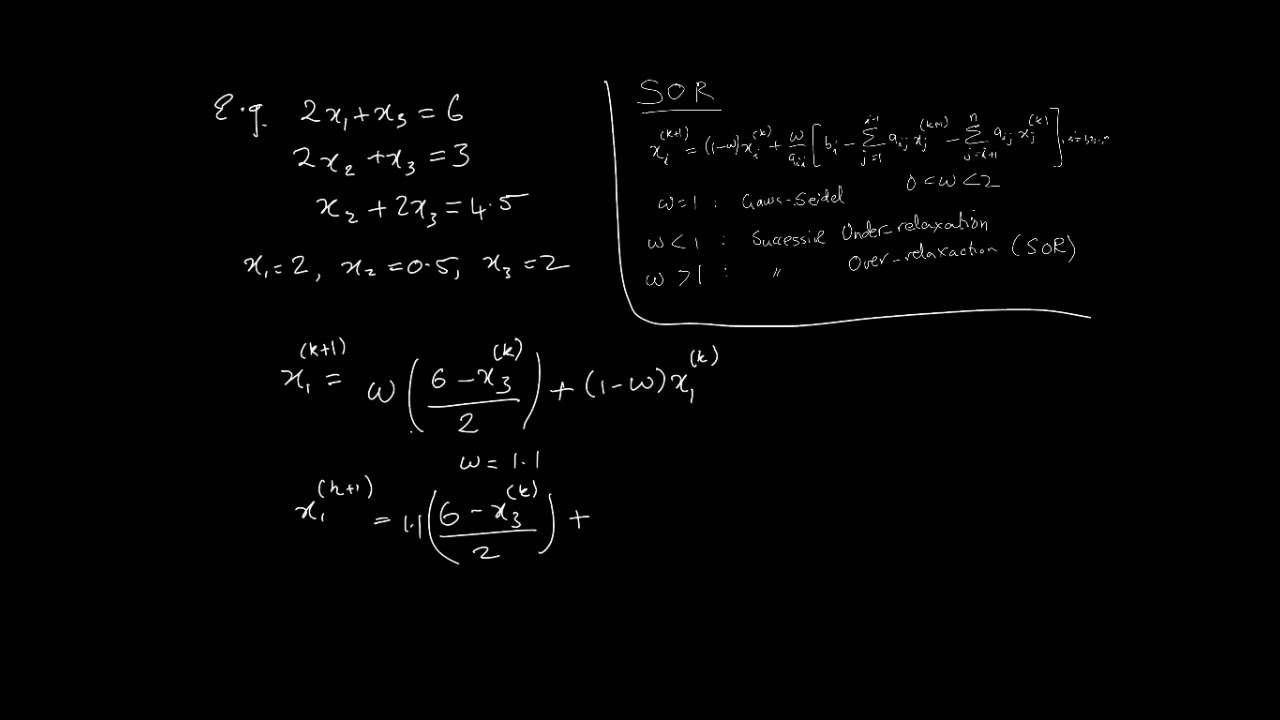 E.g. 2x₁+x₃ = 6
2x₂ +x₃ = 3
x₂ + 2x₃ = 4.5
x₁=2, x₂ =0.5, x₃ =2
SOR
xᵢ^(k+1) = (1-ω)xᵢ^(k) + ω/aᵢᵢ [bᵢ - Σ_{j=1}^{i-1} aᵢⱼ xⱼ^(k+1) - Σ_{j=i+1}^{n} aᵢⱼ xⱼ^(k)], i=1,2,..,n
0<ω<2
ω=1 : Gauss-Seidel
ω<1 : Successive Under-relaxation
ω >1 : " Over-relaxaction (SOR)
x₁^(k+1) = ω((6-x₃^(k))/2) + (1-ω)x₁^(k)
ω = 1.1
x₁^(k+1) = 1.1((6-x₃^(k))/2) +